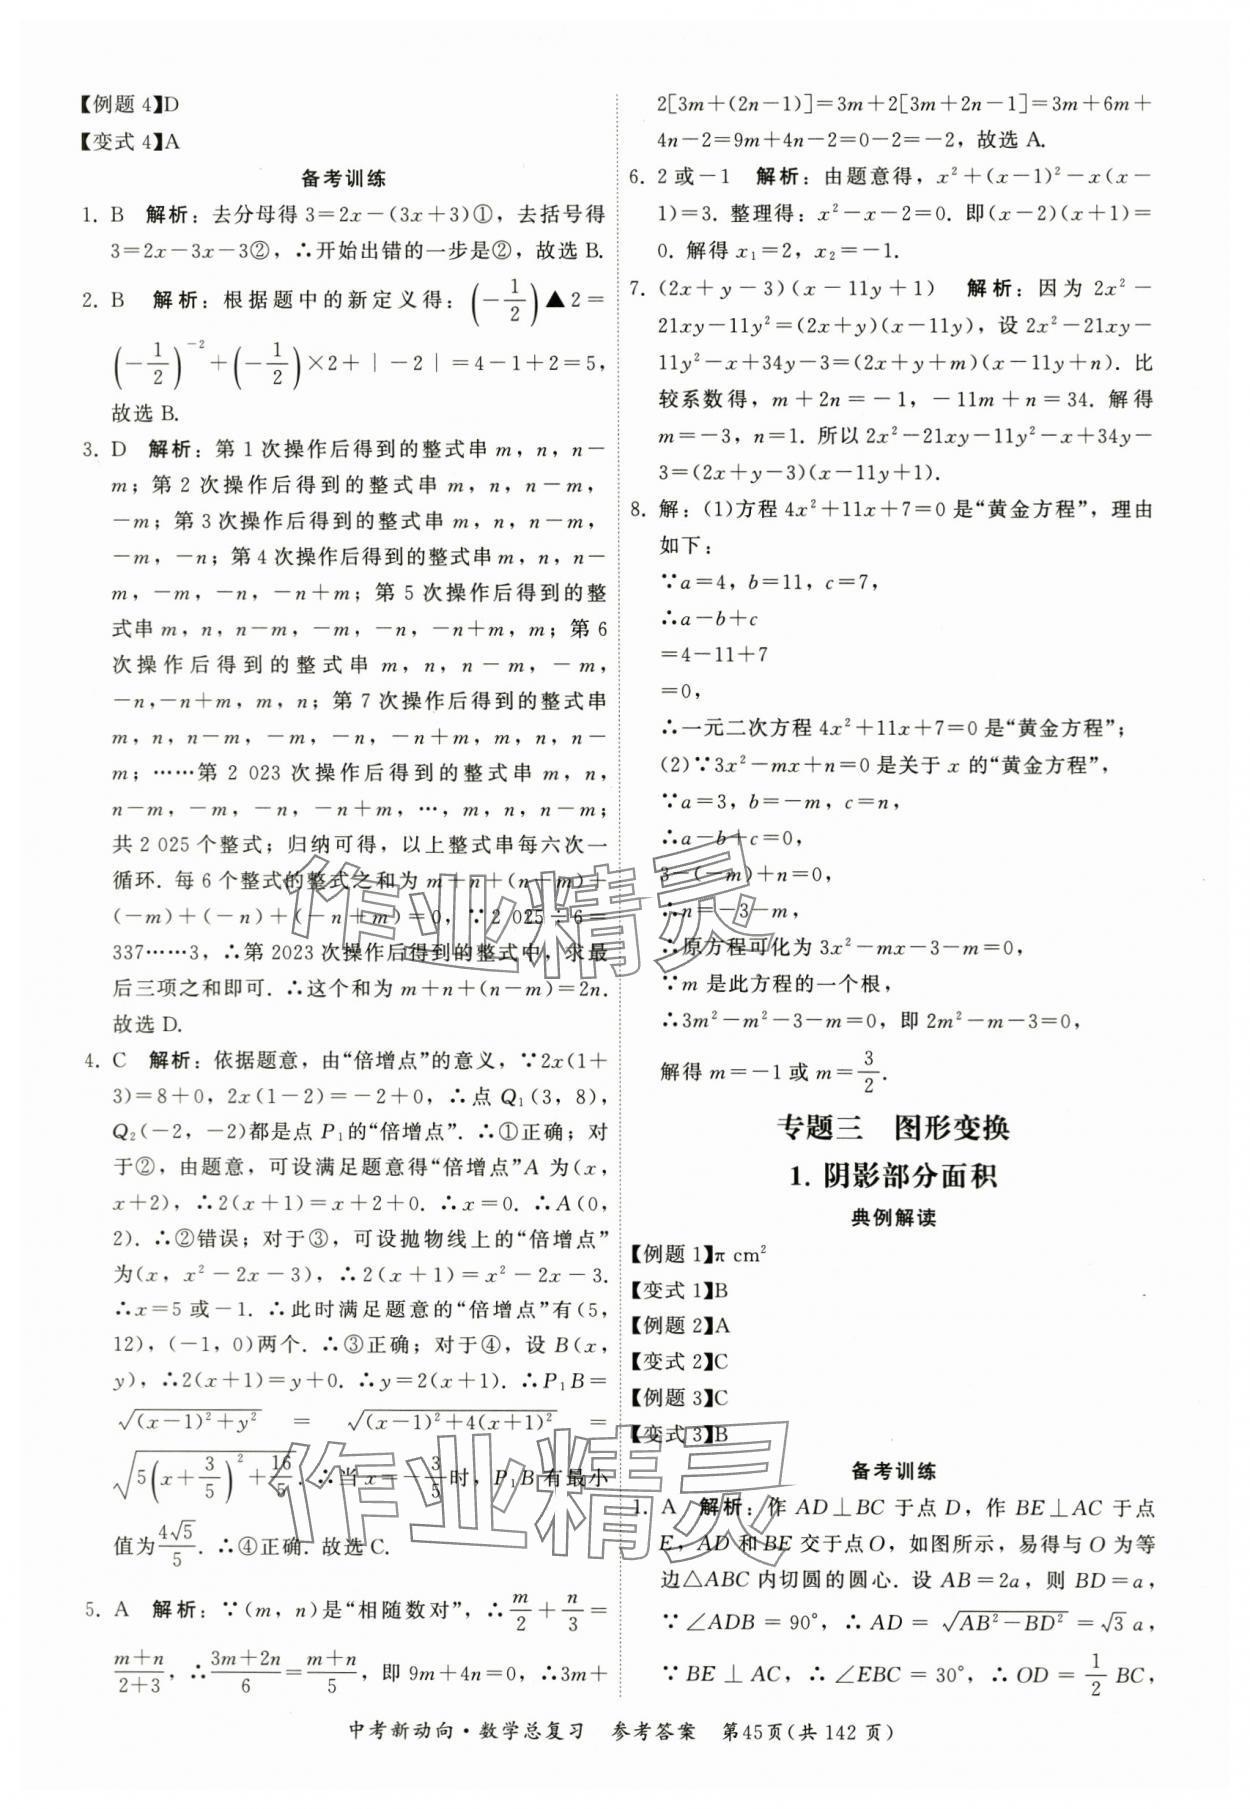 【例题 4】D
【变式 4】A
备考训练
1. B 解析：去分母得 3=2x-(3x+3)①，去括号得
3=2x-3x-3②，∴开始出错的一步是②，故选 B.
2. B 解析：根据题中的新定义得：(-1/2)▲2=
(-1/2)^{-2}+(-1/2)×2+|-2|=4-1+2=5，
故选 B.
3. D 解析：第 1 次操作后得到的整式串 m，n，n-
m；第 2 次操作后得到的整式串 m，n，n-m，
-m；第 3 次操作后得到的整式串 m，n，n-m，
-m，-n；第 4 次操作后得到的整式串 m，n，n-
m，-m，-n，-n+m；第 5 次操作后得到的整
式串 m，n，n-m，-m，-n，-n+m，m；第 6
次操作后得到的整式串 m，n，n-m，-m，
-n,-n+m，m，n；第 7 次操作后得到的整式串
m，n，n-m，-m，-n，-n+m，m，n，n-
m；……第 2 023 次操作后得到的整式串 m，n，
n-m，-m，-n，-n+m，…，m，n，n-m；
共 2 025 个整式；归纳可得，以上整式串每六次一
循环. 每 6 个整式的整式之和为 m+n+(n-m)+
(-m)+(-n)+(-n+m)=0，∵2 025÷6=
337……3，∴第 2023 次操作后得到的整式中，求最
后三项之和即可. ∴这个和为 m+n+(n-m)=2n.
故选 D.
4. C 解析：依据题意，由“倍增点”的意义，∵2x(1+
3)=8+0，2x(1-2)=-2+0，∴点 Q₁(3，8)，
Q₂(-2，-2)都是点 P₁的“倍增点”. ∴①正确；对
于②，由题意，可设满足题意得“倍增点”A 为(x，
x+2)，∴2(x+1)=x+2+0. ∴x=0. ∴A(0，
2). ∴②错误；对于③，可设抛物线上的“倍增点”
为(x，x²-2x-3)，∴2(x+1)=x²-2x-3.
∴x=5 或-1. ∴此时满足题意的“倍增点”有(5，
12)，(-1，0)两个. ∴③正确；对于④，设 B(x，
y)，∴2(x+1)=y+0. ∴y=2(x+1). ∴P₁B=
√((x-1)²+y²) = √((x-1)²+4(x+1)²) =
√(5(x+3/5)²+16/5). ∴当 x=-3/5时，P₁B 有最小
值为4√5/5. ∴④正确. 故选 C.
5. A 解析：∵(m，n)是“相随数对”，∴m/2+n/3=
(m+n)/(2+3)，∴(3m+2n)/6=(m+n)/5，即 9m+4n=0，∴3m+
2[3m+(2n-1)]=3m+2[3m+2n-1]=3m+6m+
4n-2=9m+4n-2=0-2=-2，故选 A.
6. 2 或-1 解析：由题意得，x²+(x-1)²-x(x-
1)=3. 整理得：x²-x-2=0. 即(x-2)(x+1)=
0. 解得 x₁=2，x₂=-1.
7. (2x+y-3)(x-11y+1) 解析：因为 2x²-
21xy-11y²=(2x+y)(x-11y)，设 2x²-21xy-
11y²-x+34y-3=(2x+y+m)(x-11y+n). 比
较系数得，m+2n=-1，-11m+n=34. 解得
m=-3，n=1. 所以 2x²-21xy-11y²-x+34y-
3=(2x+y-3)(x-11y+1).
8. 解：(1)方程 4x²+11x+7=0 是“黄金方程”，理由
如下：
∵a=4，b=11，c=7，
∴a-b+c
=4-11+7
=0，
∴一元二次方程 4x²+11x+7=0 是“黄金方程”；
(2)∵3x²-mx+n=0 是关于 x 的“黄金方程”，
∵a=3，b=-m，c=n，
∴a-b+c=0，
3-(-m)+n=0，
∴n=-3-m，
∴原方程可化为 3x²-mx-3-m=0，
∵m 是此方程的一个根，
∴3m²-m²-3-m=0，即 2m²-m-3=0，
解得 m=-1 或 m=3/2.
专题三 图形变换
1. 阴影部分面积
典例解读
【例题 1】π cm²
【变式 1】B
【例题 2】A
【变式 2】C
【例题 3】C
【变式 3】B
备考训练
1. A 解析：作 AD⊥BC 于点 D，作 BE⊥AC 于点
E，AD 和 BE 交于点 O，如图所示，易得与 O 为等
边△ABC 内切圆的圆心. 设 AB=2a，则 BD=a，
∵∠ADB=90°，∴AD=√(AB²-BD²)=√3 a，
∵BE⊥AC，∴∠EBC=30°，∴OD=1/2 BC，
中考新动向·数学总复习 参考答案 第45页(共 142 页)
作业精灵
作业精灵